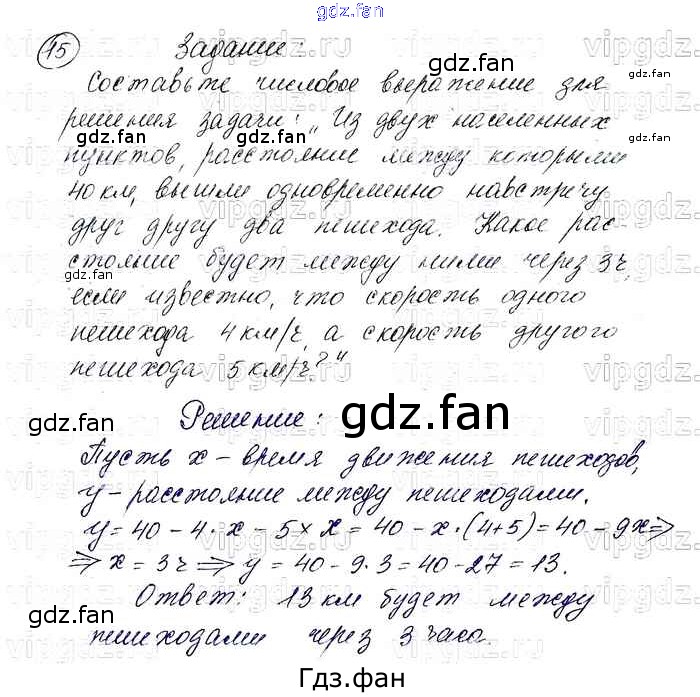 gdz.fan
15 Задание:
Составьте числовое выражение для
решения задачи: „Из двух населенных
пунктов, расстояние между которыми
40 км, вышли одновременно навстречу
друг другу два пешехода. Какое рас-
стояние будет между ними через 3 ч,
если известно, что скорость одного
пешехода 4 км/ч, а скорость другого
пешехода 5 км/ч?"
Решение:
Пусть x – время движения пешеходов,
y – расстояние между пешеходами.
y = 40 – 4 · x – 5 × x = 40 – x · (4+5) = 40 – 9x ⇒
⇒ x = 3 ч ⇒ y = 40 – 9 · 3 = 40 – 27 = 13.
Ответ: 13 км будет между
пешеходами через 3 часа.
Гдз.фан